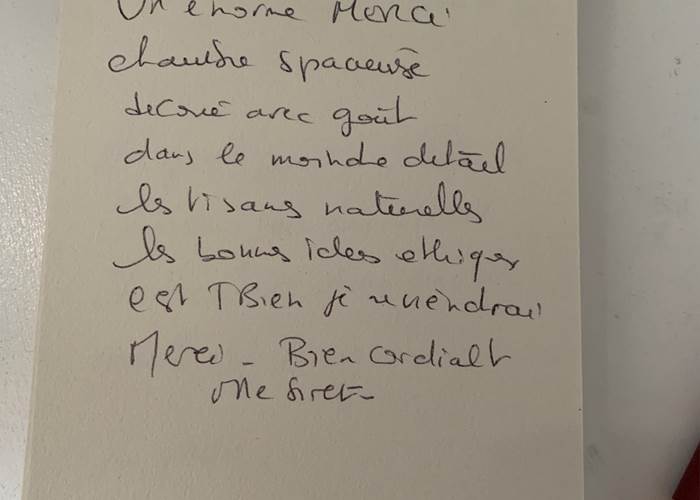 Un énorme Merci
chambre spacieuse
decoré avec goût
dans le moindre détail
les tisans naturelles
les bonnes idées ethiques
est TBien je reviendrai
Merci - Bien cordialt
Mme